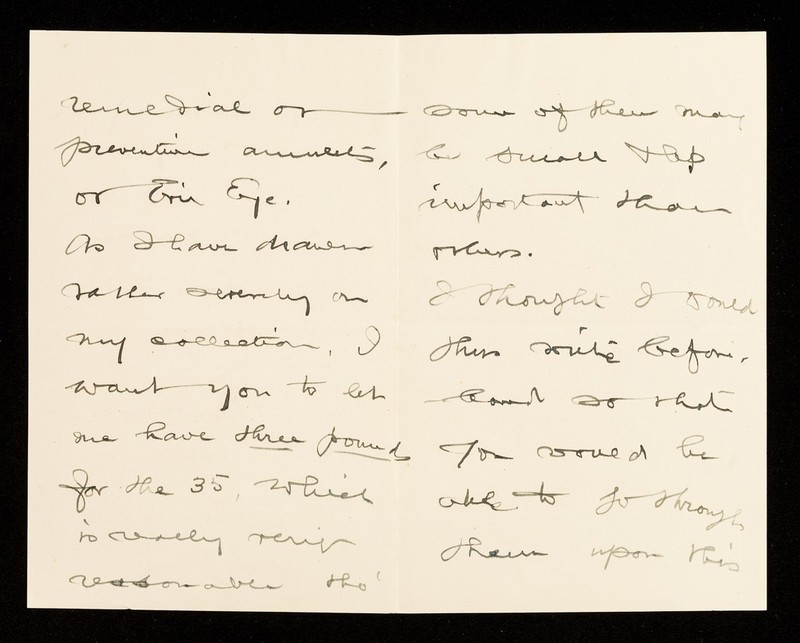 remedial or
preventive amulets,
or Evil Eye.
As I have drawn
rather severely on
my collection, I
want you to let
me have three pounds
for the 35, which
is really very
reasonable tho'
some of them may
be small & less
important than
others.
I thought I would
thus write before-
hand so that
you would be
able to go through
them upon this